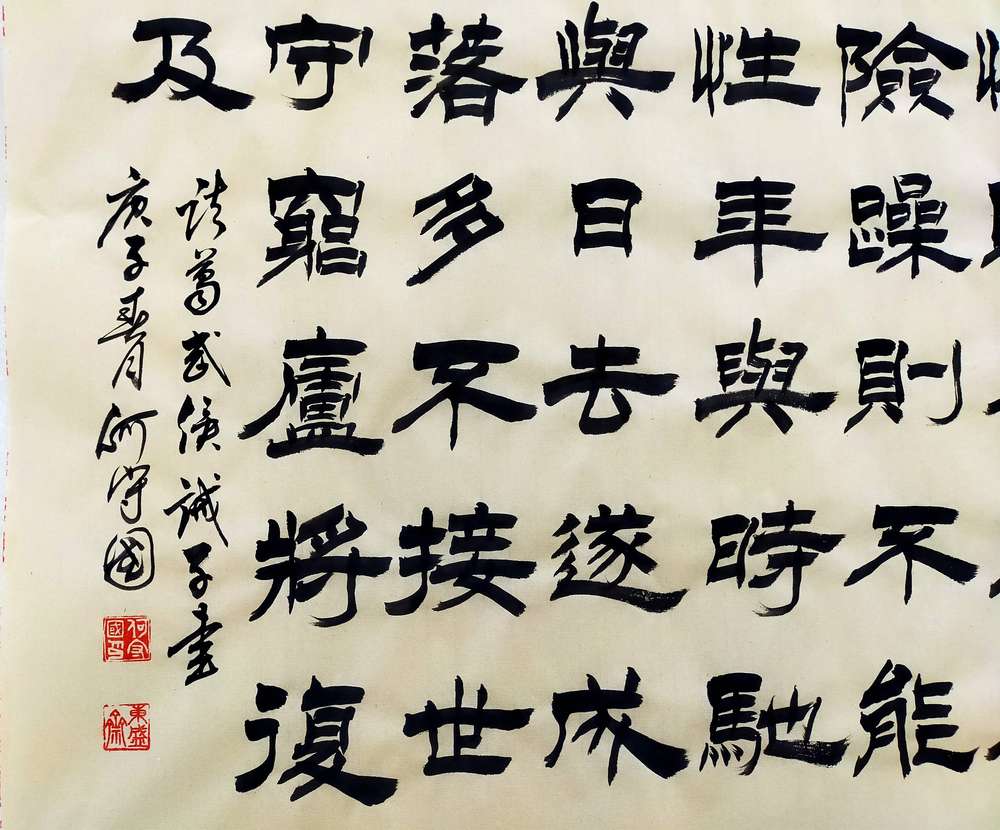 險躁則不能
性年與時馳
與日去遂成
落多不接世
守窮廬將復
及
諸葛武侯誡子書
庚子春月何守國
何守國印
東盛齋